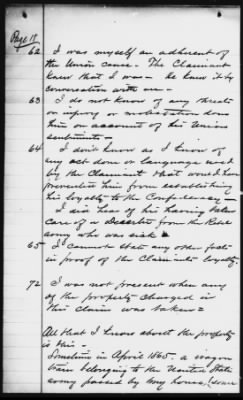 Page 11
62 I was myself an adherent of
the Union cause. The Claimant
knew that I was - he knew it by
conversation with me -
63 I do not know of any threats
or injury or molestation done
him on account of his Union
sentiments -
64 I don't know as I know of
any act done or language used
by the Claimant that would have
prevented him from establishing
his loyalty to the Confederacy -
I did hear of his having taken
care of a deserter from the Rebel
army who was sick
65 I cannot state any other facts
in proof of the Claimants loyalty.
72 I was not present when any
of the property charged in
this claim was taken =
All that I know about the property
is this -
Sometime in April 1865. a wagon
train belonging to the United States
army passed by my house,